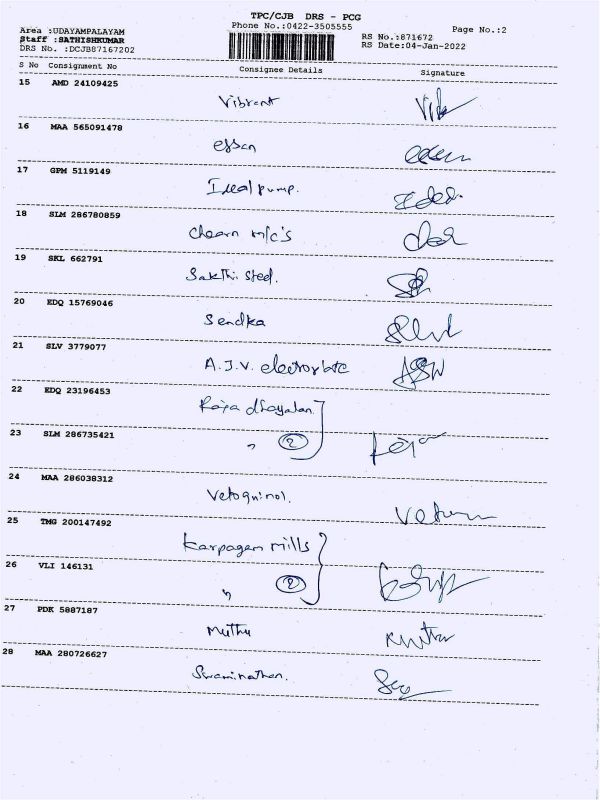 TPC/CJB DRS - PCG
Area :UDAYAMPALAYAM Phone No.:0422-3505555 Page No.:2
Staff :SATHISHKUMAR RS No.:871672
DRS No. :DCJB87167202 RS Date:04-Jan-2022
S No Consignment No Consignee Details Signature
15 AMD 24109425
Vibrant
16 MAA 565091478
essan
17 GPM 5119149
Ideal pump.
18 SLM 286780859
m/c's
19 SKL 662791
Sakthi steel.
20 EDQ 15769046
Sendka
21 SLV 3779077
A.J.V. electroplate
22 EDQ 23196453
Raja dhayalan
23 SLM 286735421
" 2
24 MAA 286038312
Vetoquinol.
25 TMG 200147492
Karpagam mills
26 VLI 146131
" 2
27 PDK 5887187
Muthu
28 MAA 280726627
Swaminathan.